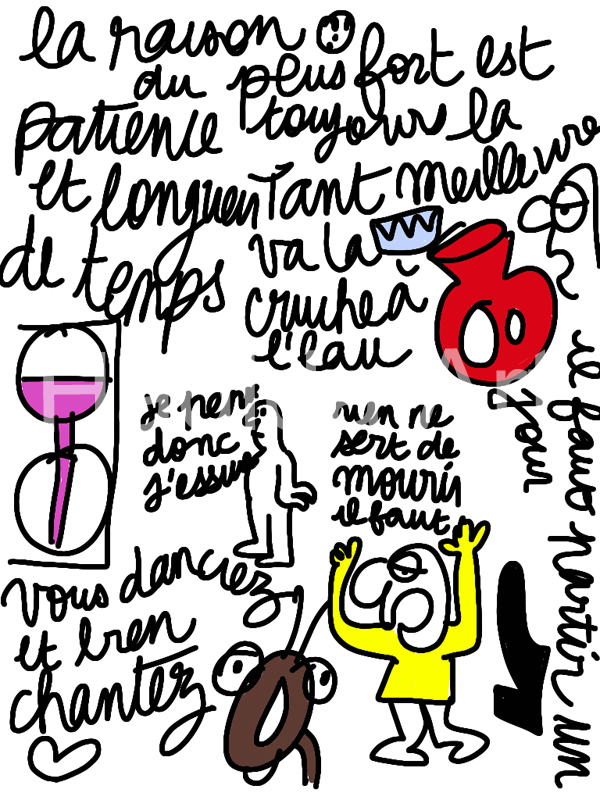 la raison
du plus fort est
toujours la
meilleure
patience
et longueur
de temps
Tant
va la
cruche à
l'eau
je pense
donc
j'essuie
rien ne
sert de
mourir
il faut
il faut partir un
jour
vous danciez
et bien
chantez